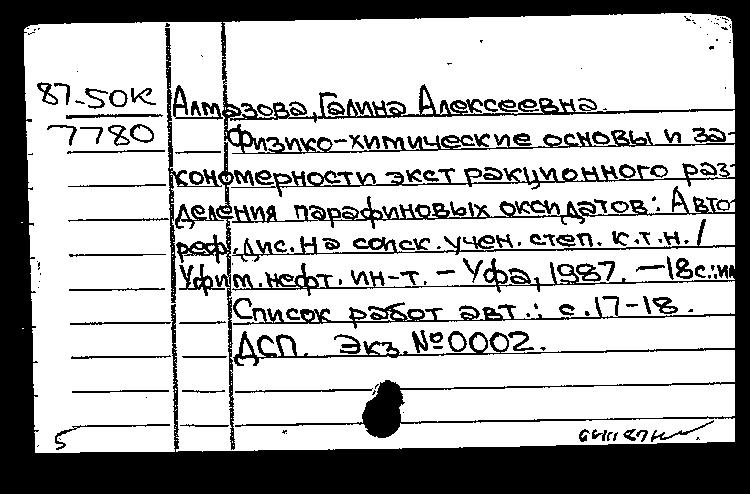 87-50К Алмазова, Галина Алексеевна.
7780 Физико-химические основы и за-
кономерности экстракционного раз-
деления парафиновых оксидатов: Авто-
реф. дис. на соиск. учен. степ. к.т.н. /
Уфим. нефт. ин-т. – Уфа, 1987. – 18с.: ил
Список работ авт.: с. 17-18.
ДСП. Экз. № 0002.
5